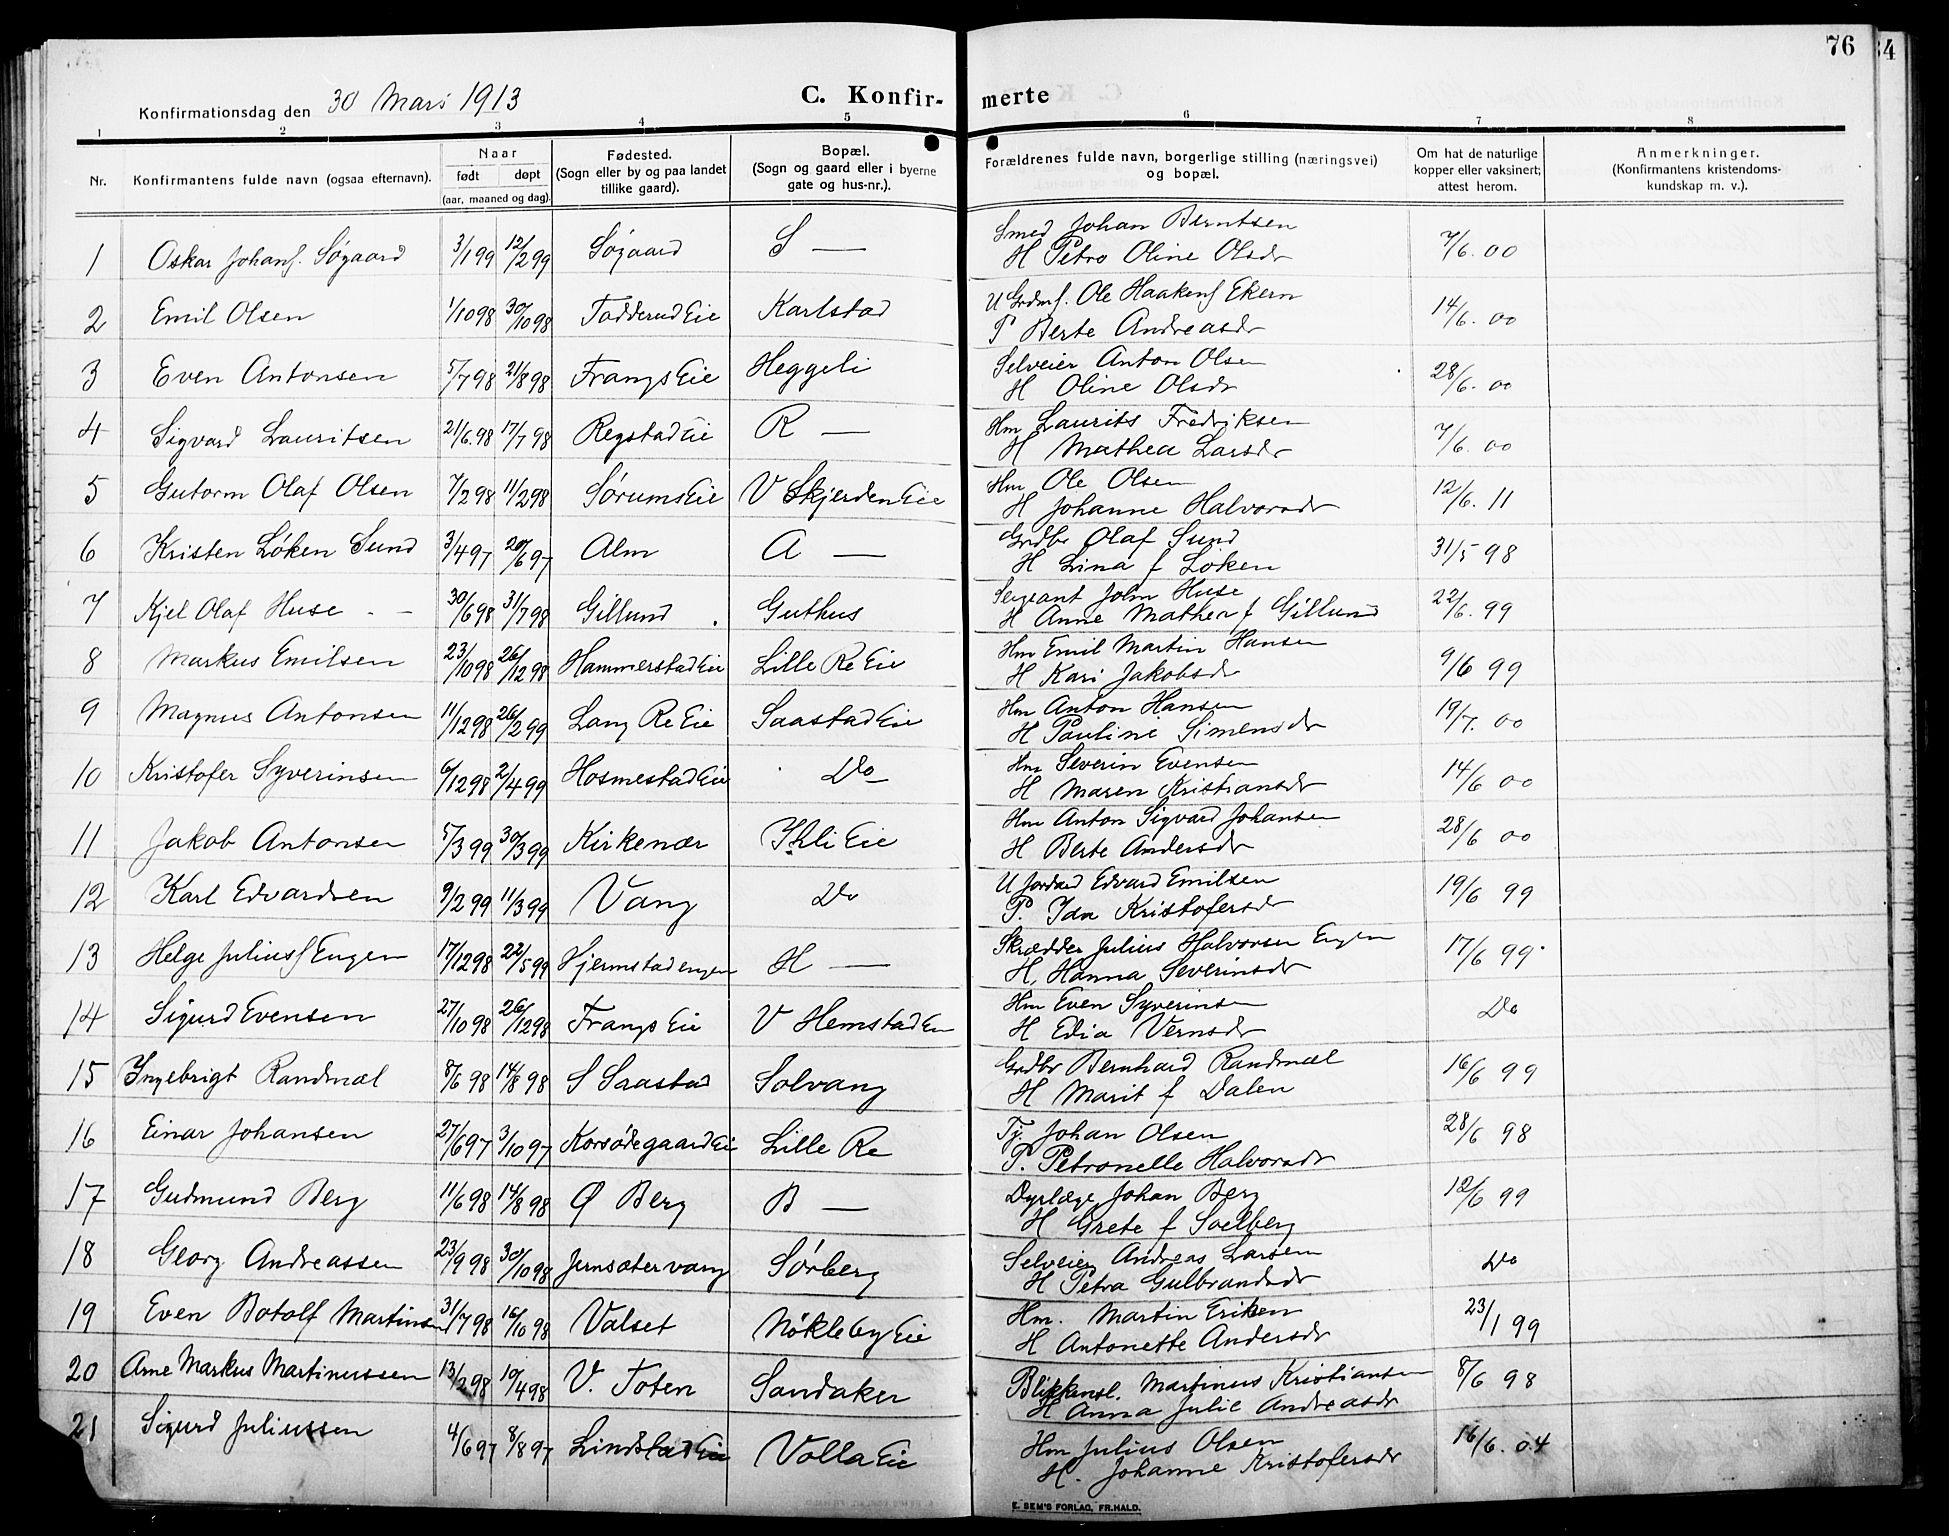 76
34
Konfirmationsdag den 30 Mars 1913 C. Konfir- merte
1 2 3 4 5 6 7 8
Nr. Konfirmantens fulde navn (ogsaa efternavn). Naar født døpt (aar, maaned og dag). Fødested. (Sogn eller by og paa landet tillike gaard). Bopæl. (Sogn og gaard eller i byerne gate og hus-nr.). Forældrenes fulde navn, borgerlige stilling (næringsvei) og bopæl. Om hat de naturlige kopper eller vaksinert; attest herom. Anmerkninger. (Konfirmantens kristendoms-kundskap m. v.).
1 Oskar Johans. Søgaard 3/1 99 12/2 99 Søgaard S — Smed Johan Berntsen 7/6. 00
H Petro Oline Olsdr
2 Emil Olsen 1/10 98 30/10 98 Fodderud Eie Karlstad U Grdms. Ole Haakens Ekern 14/6. 00
P Berte Andreasdr
3 Even Antonsen 5/7 98 21/8 98 Frangs Eie Heggeli Selveier Anton Olsen 28/6. 00
H Oline Olsdr
4 Sigvard Lauritsen 21/6. 98 17/7 98 Regstad Eie R — Hm Laurits Fredriksen 7/6. 00
H Mathea Larsdr
5 Gutorm Olaf Olsen 7/2 98 11/2 98 Sørums Eie V Skjerden Eie Hm Ole Olsen 12/6. 11
H Johanne Halvorsdr
6 Kristen Løken Sund 3/4 97 20/6 97 Alm A — Grdbr Olaf Sund 31/5 98
H Lina f Løken
7 Kjel Olaf Huse 30/6 98 31/7 98 Gillund Guthus Sergeant John Huse 22/6. 99
H Anne Mathea f Gillund
8 Markus Emilsen 23/10 98 26/12 98 Hammerstad Eie Lille Re Eie Hm Emil Martin Hansen 9/6 99
H Kari Jakobsdr
9 Magnus Antonsen 11/12 98 26/2 99 Lang Re Eie Saastad Eie Hm Anton Hansen 19/7. 00
H Pauline Simensdr
10 Kristofer Syverinsen 6/12 98 2/4 99 Hosmestad Eie Do Hm Severin Evensen 14/6 00
H Maren Kristiansdr
11 Jakob Antonsen 5/3 99 30/3 99 Kirkenær Ihli Eie Hm Anton Sigvard Johansen 28/6 00
H Berte Andersdr
12 Karl Edvardsen 9/2 99 11/3 99 Vang Do U Jordarb Edvard Emilsen 19/6 99
P. Ida Kristofersdr
13 Helge Julius Engen 17/12 98 22/5 99 Hjermstadengen H — Skrædder Julius Halvorsen Engen 17/6 99
H, Hanna Severinsdr
14 Sigurd Evensen 27/10 98 26/12 98 Frangs Eie V Hemstad Eie Hm Even Syverinsen Do
H Edia Vernsdr
15 Ingebrigt Randmæl 8/6 98 14/8 98 S Saastad Solvang Grdbr Bernhard Randmæl 16/6 99
H Marit f Dalen
16 Einar Johansen 27/6 97 3/10 97 Korsødegaard Eie Lille Re Tj. Johan Olsen 28/6 98
P. Petronelle Halvorsdr
17 Gudmund Berg 11/6 98 14/8 98 Ø Berg B — Dyrlæge Johan Berg 12/6 99
H Grete f Solberg
18 Georg Andreassen 23/9 98 30/10 98 Jernsætervang Sørberg Selveier Andreas Larsen Do
H Petra Gulbrandsdr
19 Even Botolf Martinsen 31/7 98 16/10 98 Valset Nøkleby Eie Hm. Martin Eriksen 23/1 99
H Antonette Andersdr
20 Arne Markus Martinussen 13/2 98 10/4 98 V. Toten Sandaker Blikkensl. Martinus Kristiansen 8/6 98
H Anna Julie Andreasdr
21 Sigurd Juliussen 4/6 97 8/8 97 Lindstad Eie Volla Eie Hm Julius Olsen 16/6. 04
H. Johanne Kristofersdr
E. SEM'S FORLAG, FR.HALD.